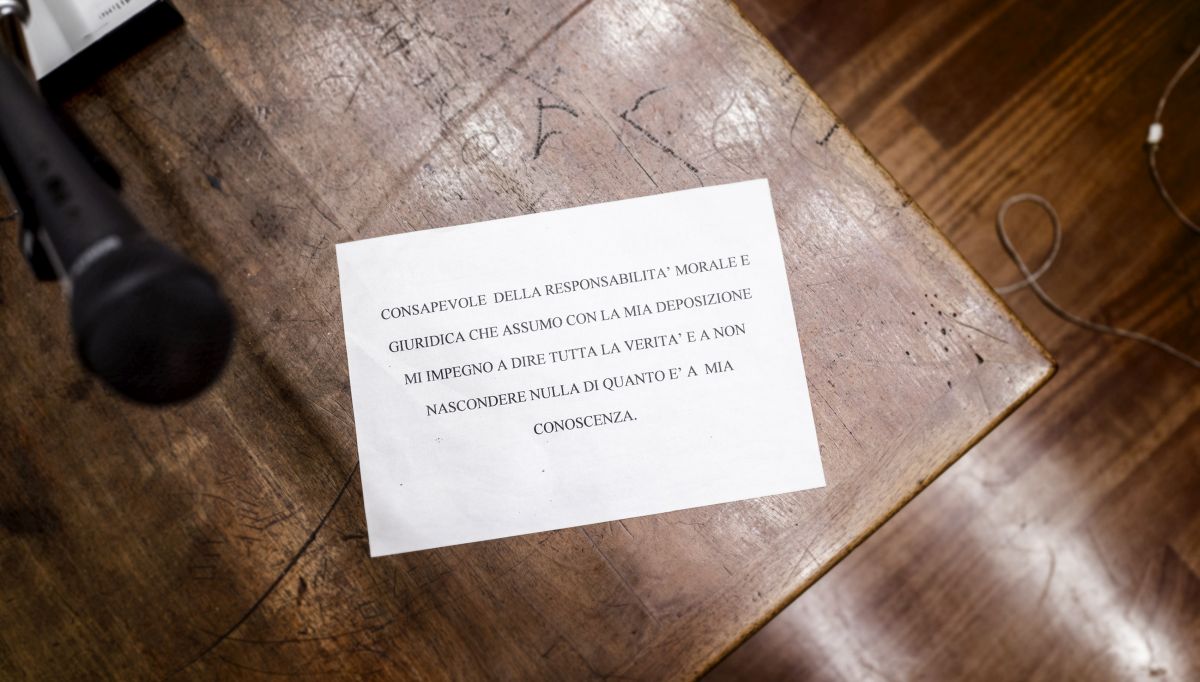 CONSAPEVOLE DELLA RESPONSABILITA' MORALE E
GIURIDICA CHE ASSUMO CON LA MIA DEPOSIZIONE
MI IMPEGNO A DIRE TUTTA LA VERITA' E A NON
NASCONDERE NULLA DI QUANTO E' A MIA
CONOSCENZA.